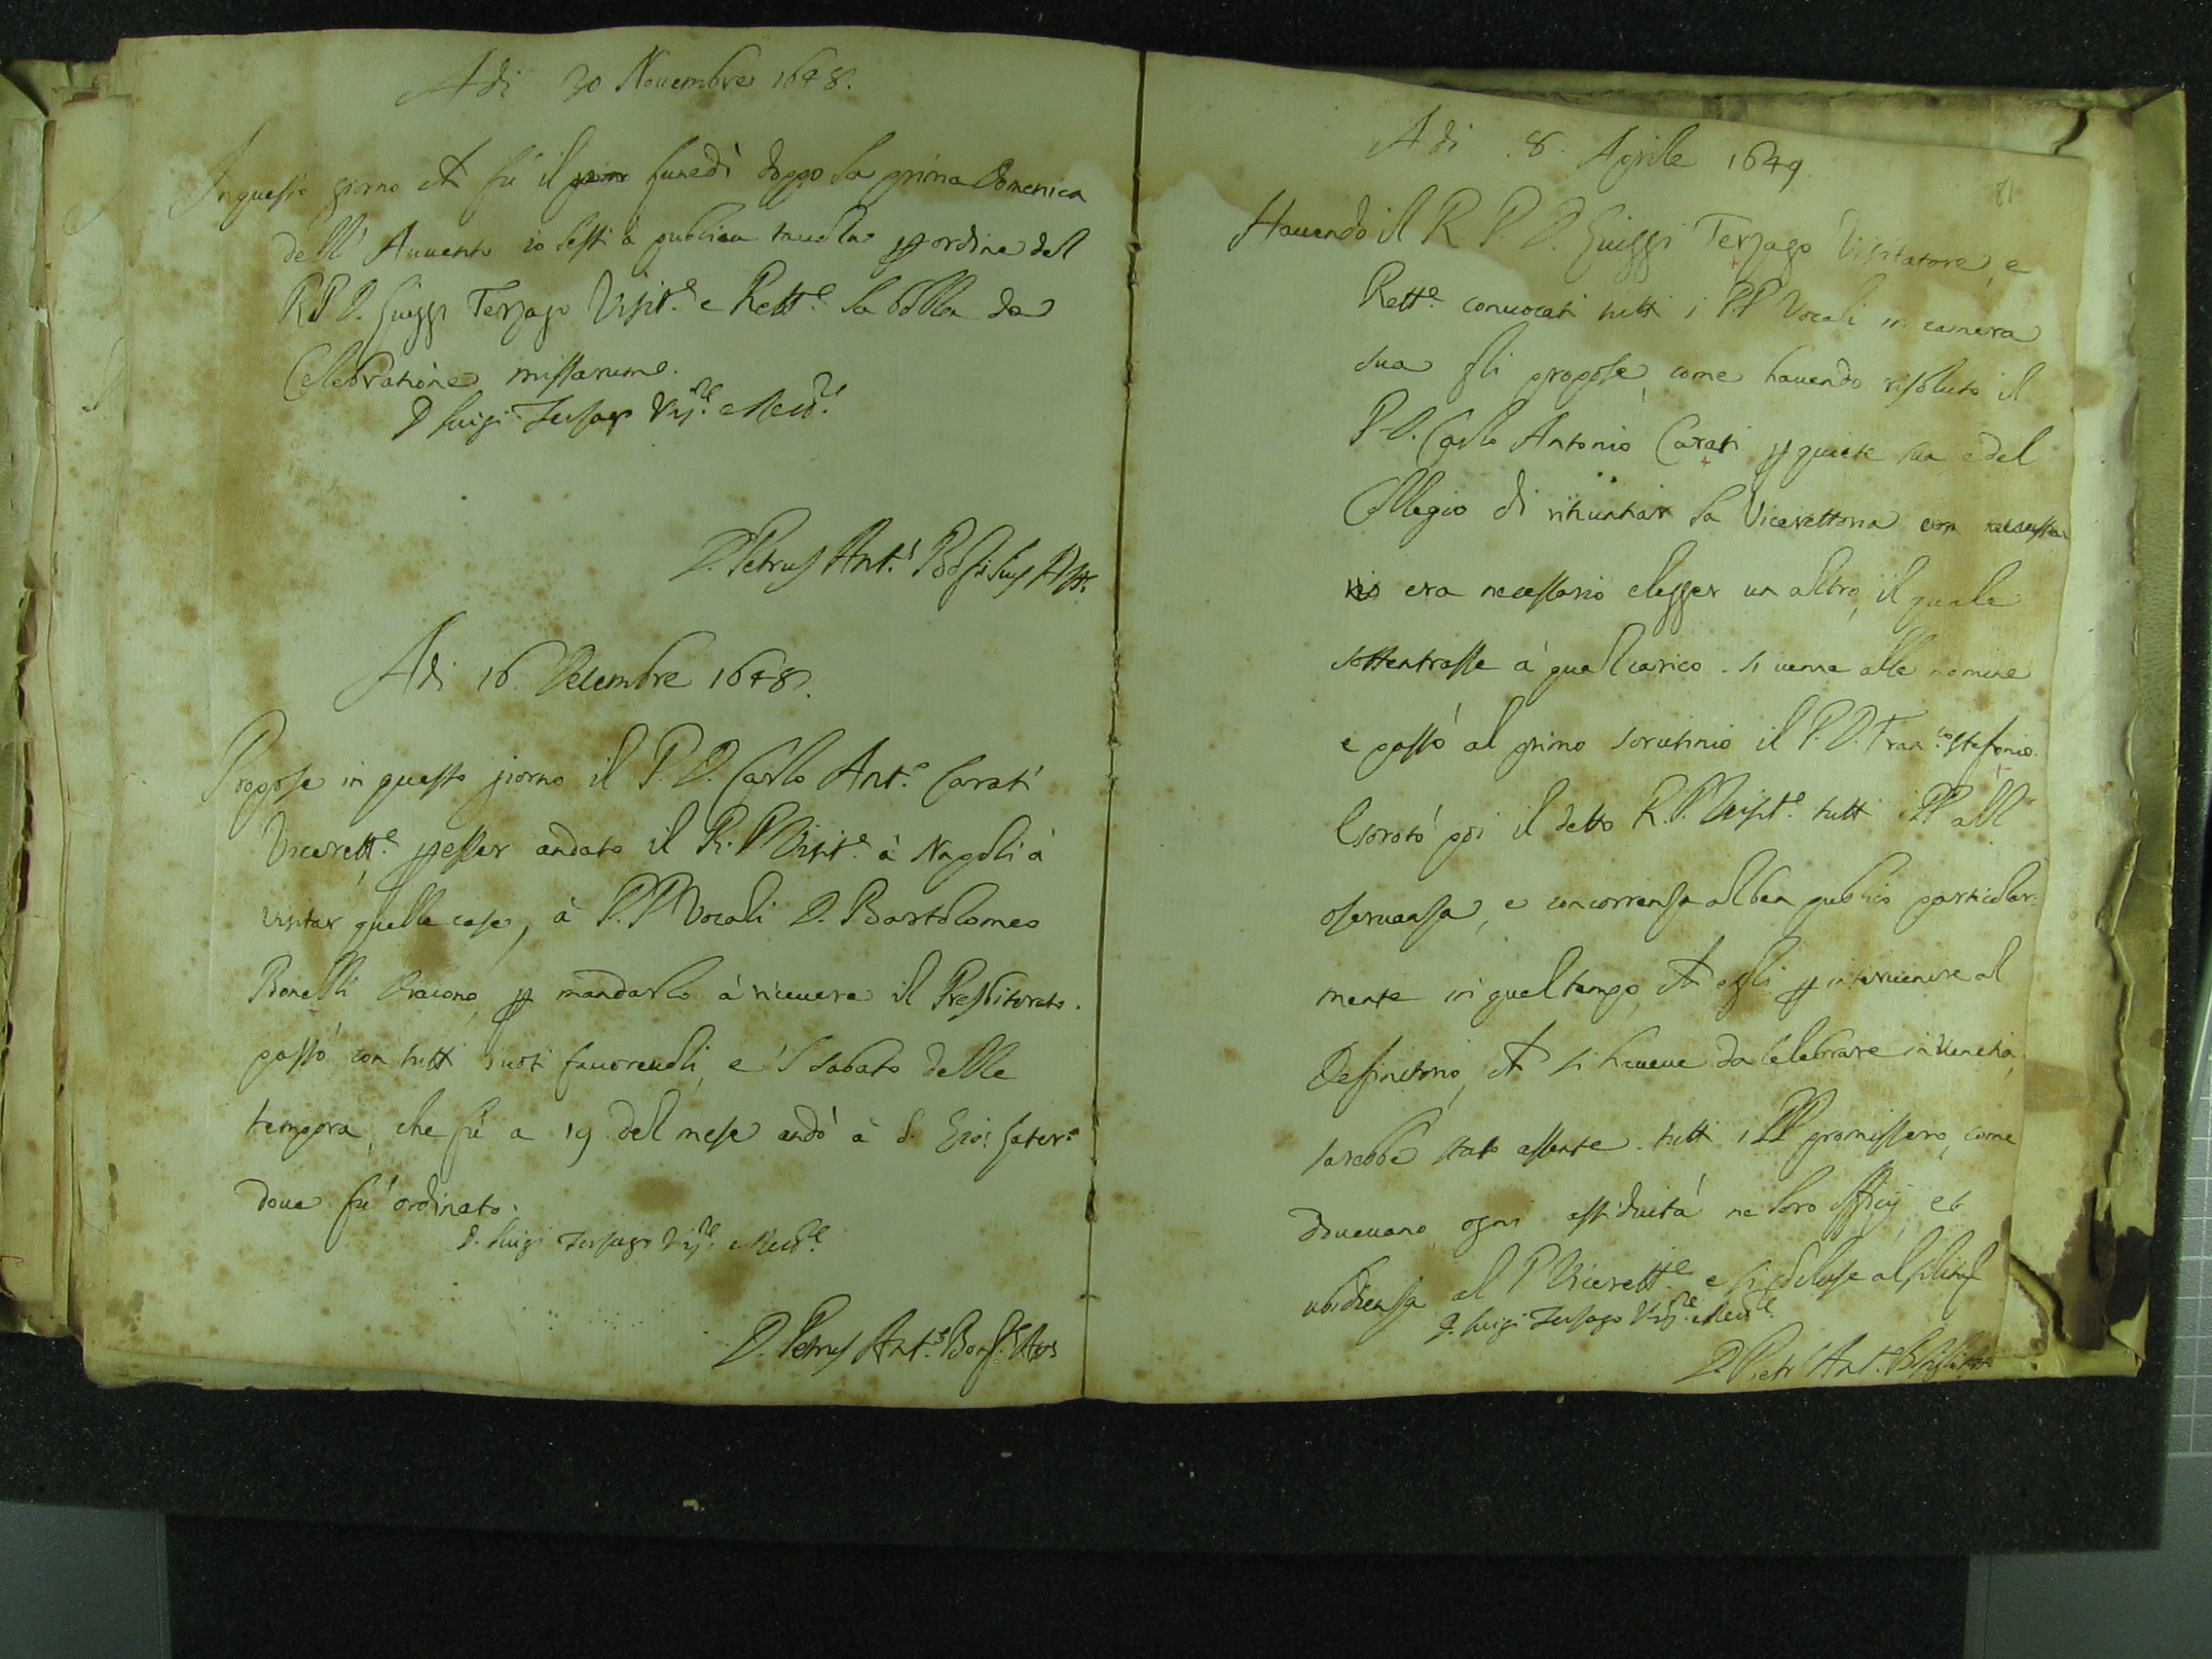 Adi 30 Nouembre 1648.
In questo giorno che fu il lunedì doppo la prima Domenica
dell' Auuento io lessi à publica tauola per ordine del
R. P. D. Luiggi Terzago Visit.e e Rett.e la bolla de
Celebratione missarum.
D Luigi Terzago Vis.re e Rett.re
D. Petrus Ant.s
Adi 16. Decembre 1648.
Propose in questo giorno il P. D. Carlo Ant.o Carati
Vicerett.e per esser andato il R. P. Visit.e à Napoli à
visitar quelle case, à P. P. Vocali D. Bartolomeo
Bonelli Diacono per mandarlo à riceuere il Presbiterato.
passò con tutti i uoti fauoreuoli, e 'l sabato delle
tempora, che fù a 19 del mese andò à S. Gio: Later.o
doue fu' ordinato.
D. Luigi Terzago Vis.re e Rett.re
D. Petrus Ant.s
Adi .8. Aprile 1649
81
Hauendo il R P. D. Luiggi Terzago Visitatore, e
Rett.e conuocati tutti i PP Vocali in camera
sua gli propose, come hauendo risoluto il
P. D. Carlo Antonio Carati per quiete sua, e del
Collegio di rinuntiar la Vicerettoria
era necessario elegger un altro, il quale
sottentrasse à quel carico. si uenne alle nomine
e passò al primo scrutinio il P. D. Fran.co Stefonio.
Esortò poi il detto R. P. Visit.e tutti i PP all
osseruanza, e concorrenza al ben publico particolar-
mente in quel tempo, che egli per interuenire al
Definitorio, che si haueua da celebrare in Venetia,
sarebbe stato assente. tutti i PP promissero, come
doueuano ogni assiduità ne loro officij, et
ubidienza al P Vicerett.e e si
D. Luigi Terzago Vis.re e Rett.re
D. Pietr' Ant.o